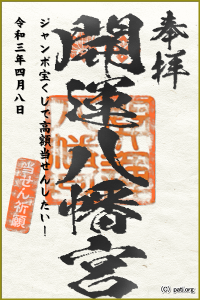 奉拝
開運八幡宮
ジャンボ宝くじで高額当せんしたい！
令和三年四月八日
当せん祈願
(C) pati.org